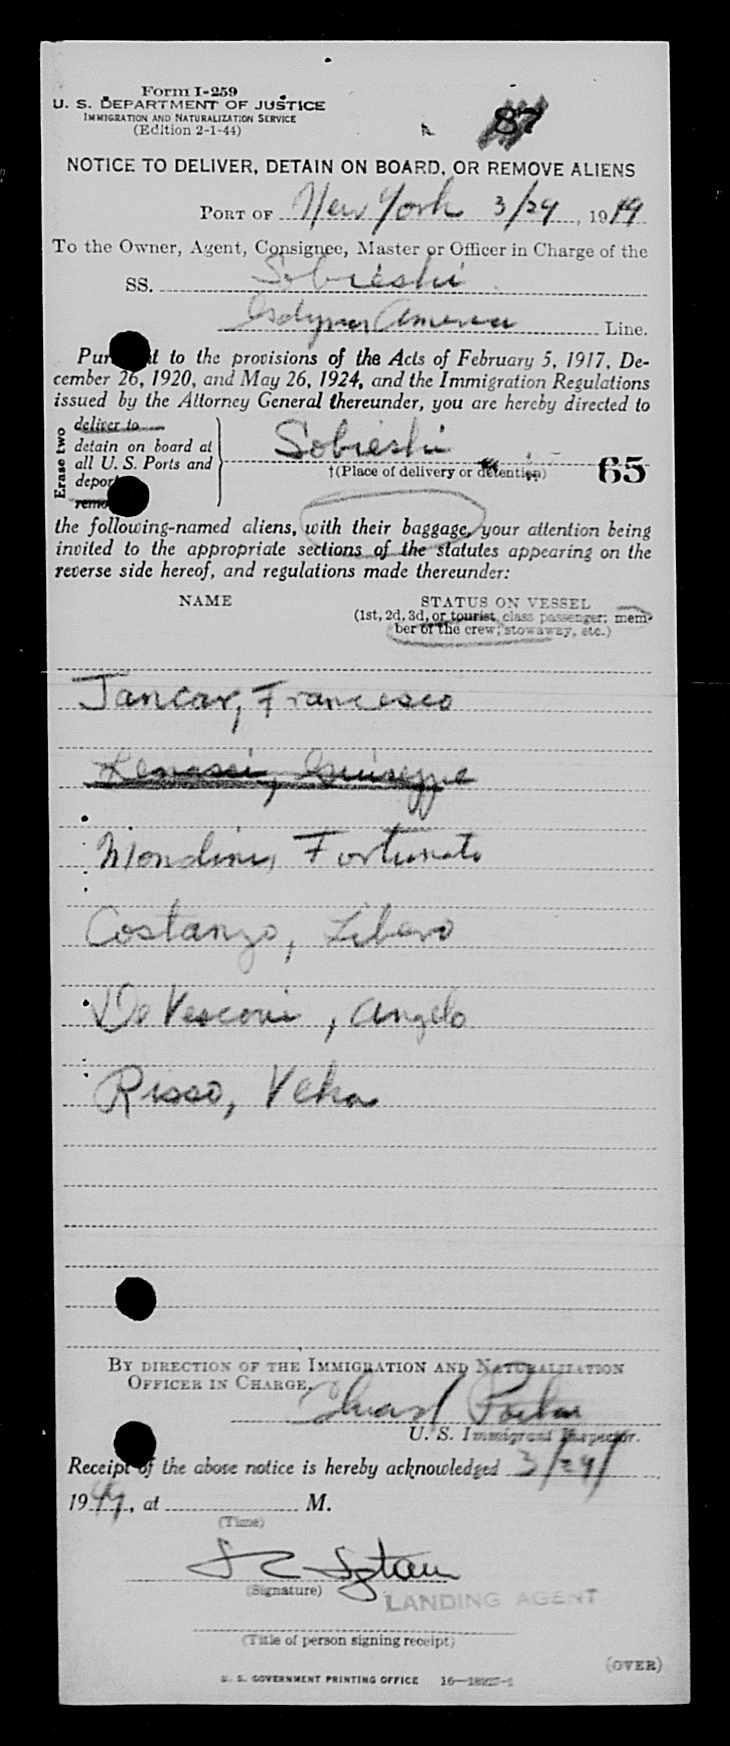 Form I-259
U. S. DEPARTMENT OF JUSTICE
IMMIGRATION AND NATURALIZATION SERVICE
(Edition 2-1-44)
87
NOTICE TO DELIVER, DETAIN ON BOARD, OR REMOVE ALIENS
PORT OF New York 3/29, 1949
To the Owner, Agent, Consignee, Master or Officer in Charge of the
SS. Sobieski
Gdynia America Line.
to the provisions of the Acts of February 5, 1917, De-
cember 26, 1920, and May 26, 1924, and the Immigration Regulations
issued by the Attorney General thereunder, you are hereby directed to
Erase two
deliver to
detain on board at
all U. S. Ports and
Sobieski
†(Place of delivery or detention)
65
the following-named aliens, with their baggage, your attention being
invited to the appropriate sections of the statutes appearing on the
reverse side hereof, and regulations made thereunder:
NAME
STATUS ON VESSEL
(1st, 2d, 3d, or tourist class passenger; mem-
ber of the crew; stowaway, etc.)
Jancar, Francesco
Giuseppe
Mondini, Fortunato
Costanzo, Libero
De Vescovi, Angelo
Risso,
BY DIRECTION OF THE IMMIGRATION AND NATURALIZATION
OFFICER IN CHARGE.
U. S. Immigrant Inspector.
Receipt of the above notice is hereby acknowledged 3/29/
1949, at M.
(Time)
(Signature)
LANDING AGENT
(Title of person signing receipt)
(OVER)
U. S. GOVERNMENT PRINTING OFFICE